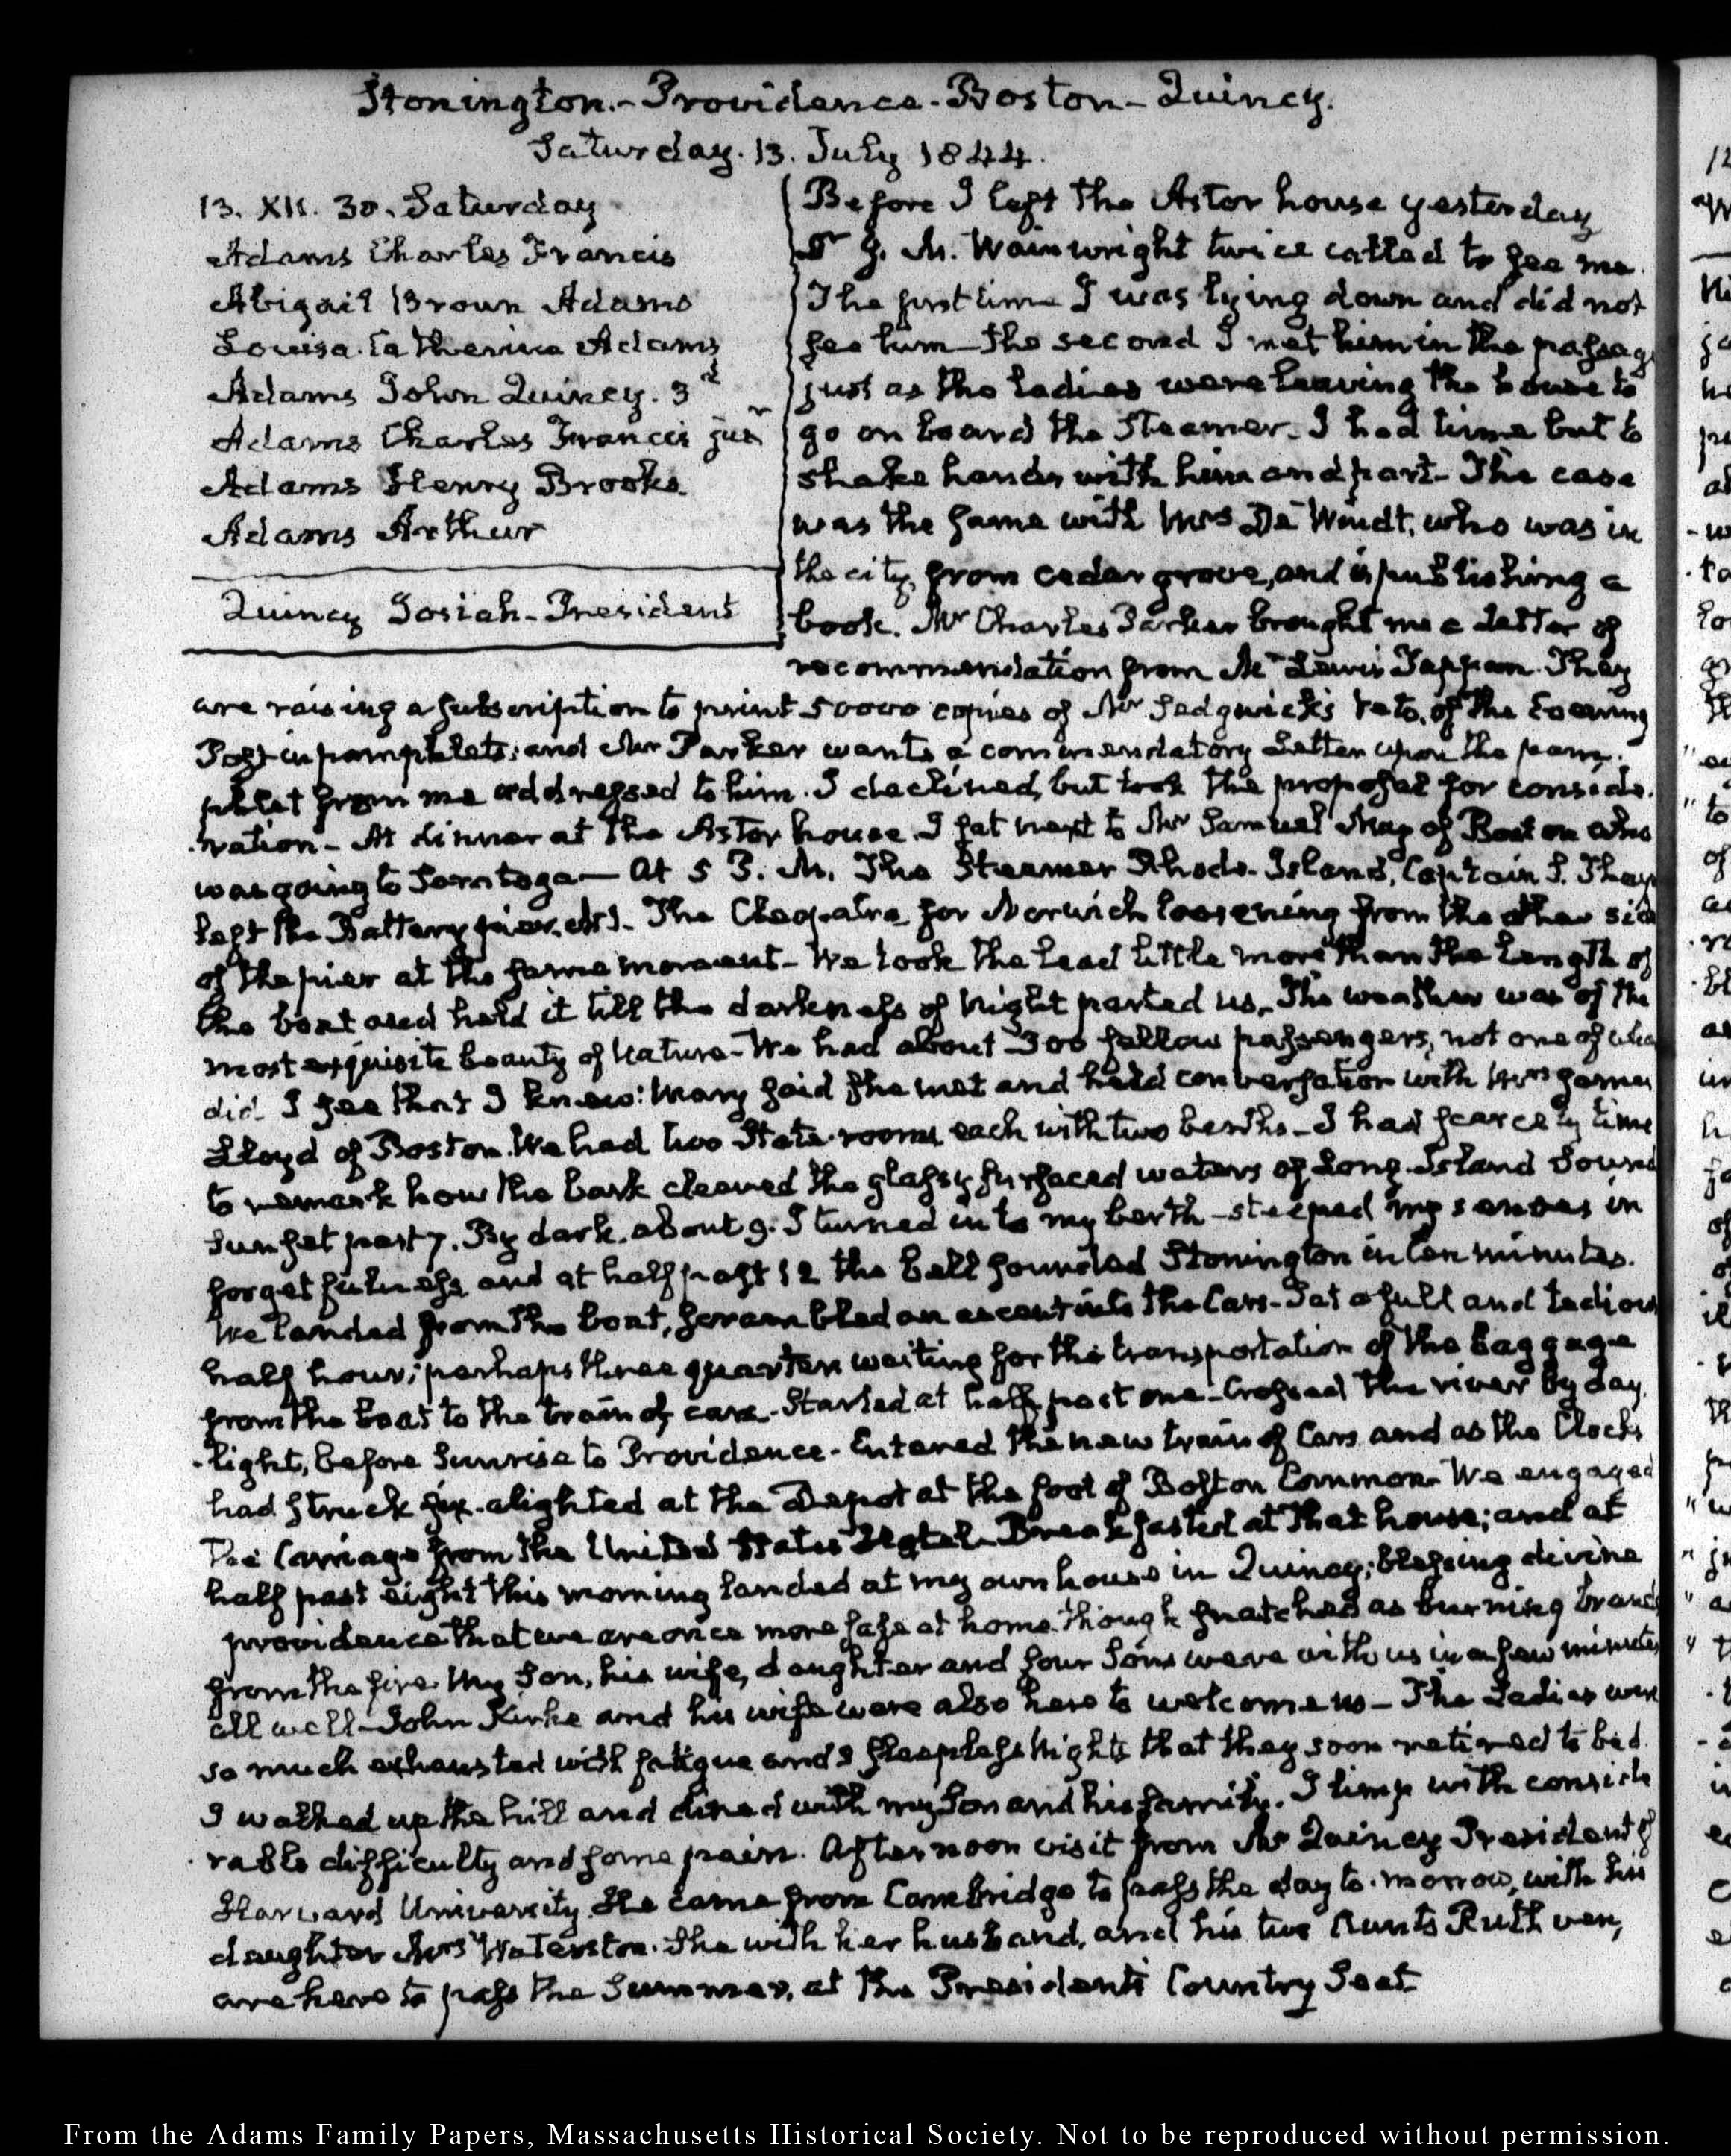 Stonington.- Providence- Boston- Quincy.
Saturday. 13. July 1844.
13. XII. 30. Saturday
Adams Charles Francis
Abigail Brown Adams
Louisa Catherine Adams
Adams John Quincy. 3d
Adams Charles Francis junr
Adams Henry Brooks
Adams Arthur
Quincy Josiah- President
Before I left the Astor house yesterday
Dr J. M. Wainwright twice called to see me.
The first time I was lying down and did not
see him— the second I met him in the passage
just as the ladies were leaving the house to
go on board the Steamer. I had time but to
shake hands with him and part- The case
was the same with Mrs De Windt, who was in
the city from cedar grove, and is publishing a
book. Mr Charles Parker brought me a Letter of
recommendation from Mr Lewis Tappan. They
are raising a subscription to print 50000 copies of Mr Sedgwick's of the Evening
Post in pamphlets; and Mr Parker wants a commendatory Letter upon the pam-
phlet from me addressed to him. I declined, but took the proposal for conside-
ration- At dinner at the Astor house I sat next to Mr Samuel May of Boston who
was going to Saratoga— At 5 P. M. The Steamer Rhode-Island, Captain S. Thayer
left the Battery pier, N.1. The Cleopatra for Norwich loosening from the other side
of the pier at the same moment- We took the lead little more than the length of
the boat and held it till the darkness of Night parted us. The weather was of the
most exquisite beauty of Nature- We had about 300 fellow passengers, not one of whom
did I see that I knew: Mary said she met and held conversation with Mrs James
Lloyd of Boston. We had two State-rooms each with two berths- I had scarcely time
to remark how the bark cleaved the glassy surfaced waters of Long-Island Sound
Sun set past 7. By dark, about 9. I turned in to my berth- steeped my senses in
forgetfulness, and at half past 12 the bell sounded Stonington in ten minutes.
We landed from the boat, scrambled an ascent into the Cars- Sat a full and tedious
half hour; perhaps three quarters waiting for the transportation of the baggage
from the boat to the train of cars- Started at half past one- Crossed the river by day
-light, before Sunrise to Providence- Entered the new train of Cars and as the Clocks
had struck six- alighted at the Depot at the foot of Boston Common- We engaged
the Carriage from the United States Hotel- Breakfasted at that house; and at
half past eight this morning landed at my own house in Quincy; blessing divine
providence that we are once more safe at home though snatched as burning brands
from the fire. My Son, his wife, daughter and four Sons were with us in a few minutes
all well- John Kirke and his wife were also here to welcome us- The Ladies were
so much exhausted with fatigue and 2 sleepless Nights that they soon retired to bed.
I walked up the hill and dined with my Son and his family. I limp with conside
rable difficulty and some pain. Afternoon visit from Mr Quincy President of
Harvard University. He came from Cambridge to pass the day to-morrow, with his
daughter Mrs Waterston. She with her husband, and his two Aunts
are here to pass the Summer, at the Presidents Country Seat
From the Adams Family Papers, Massachusetts Historical Society. Not to be reproduced without permission.